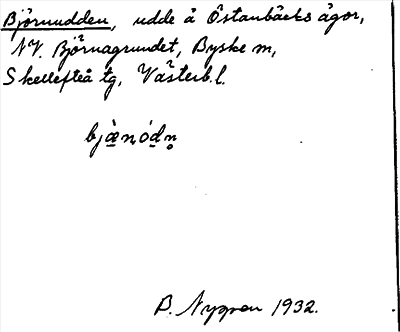 Björnudden, udde å Östanbäcks ägor,
NV. Björnagrundet, Byske sn,
Skellefteå tg, Västerb. l.
bjæ̀n̥ód̥n̥
B. Nygren 1932.